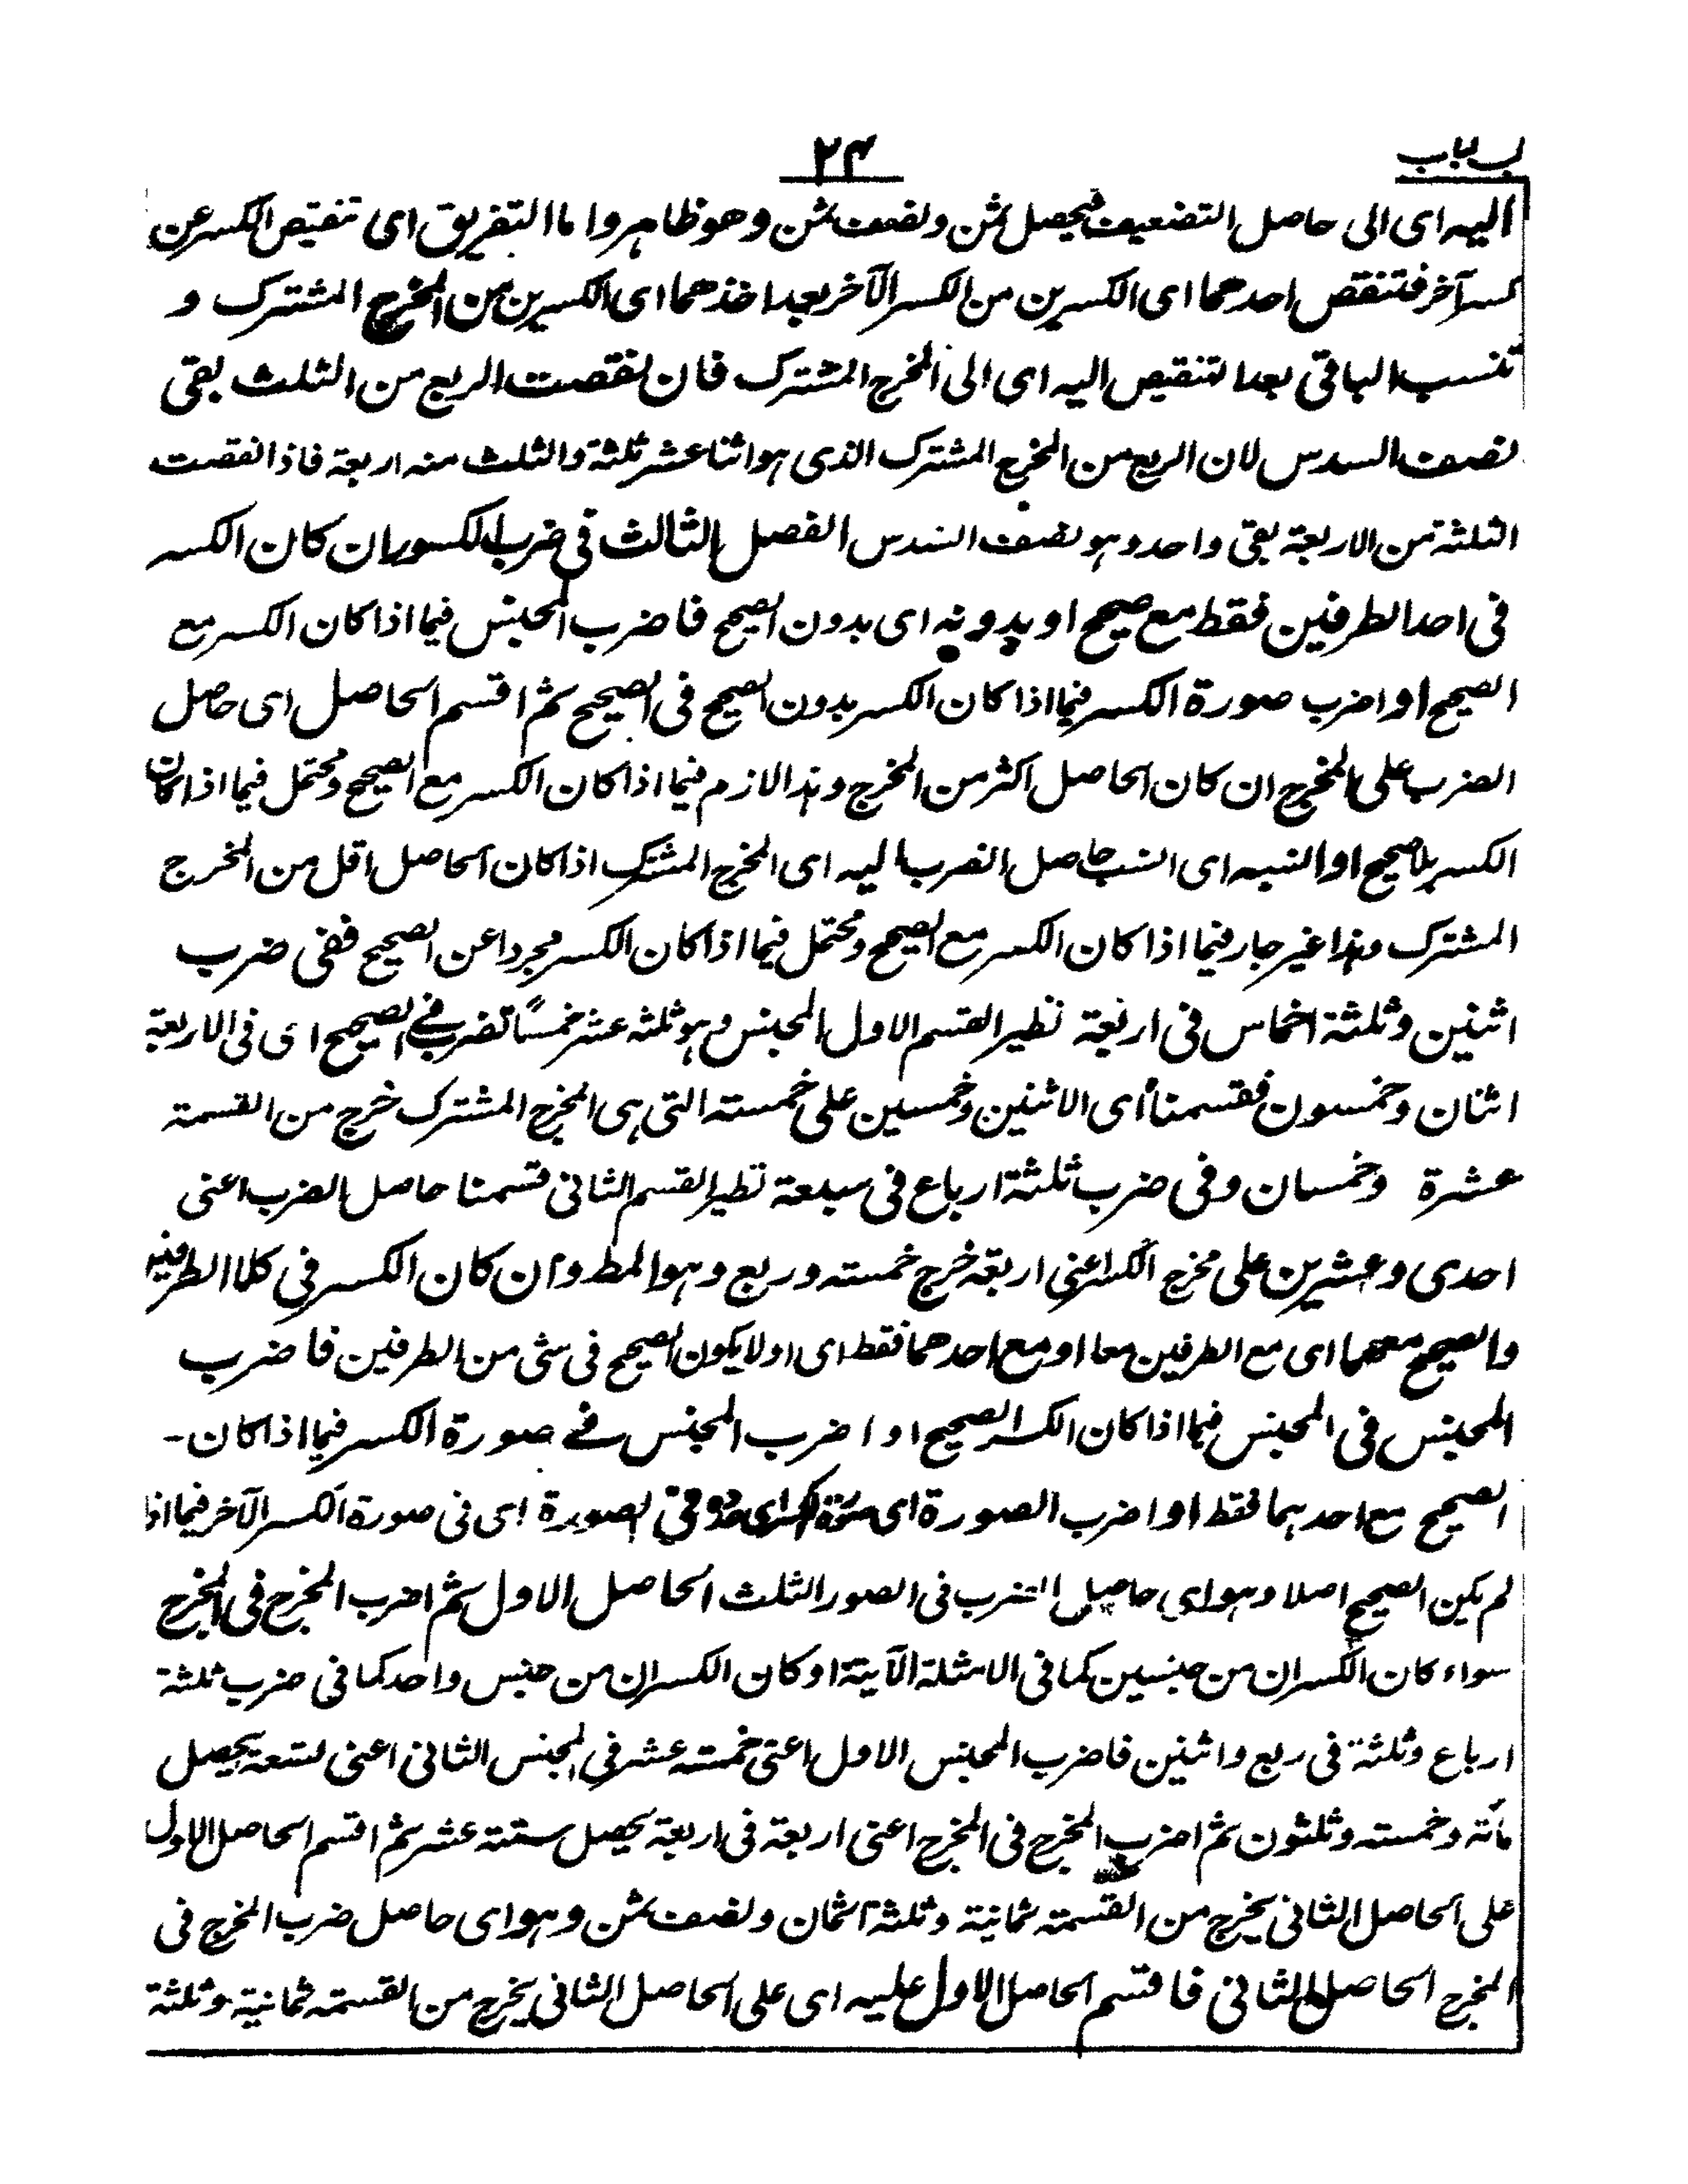 لب لباب
۲۴
الیه ای الی حاصل التضعیف فیحصل ثمن ونصف ثمن وهو ظاهر واما التفریق ای تنقیص الکسر عن
کسر آخر فتنقص احدهما ای الکسرین من الکسر الآخر بعد اخذهما ای الکسرین من المخرج المشترک و
تنسب الباقی بعد التنقیص الیه ای الی المخرج المشترک فان نقصت الربع من الثلث بقی
نصف السدس لان الربع من المخرج المشترک الذی هو اثنا عشر ثلثة والثلث منه اربعة فاذا نقصت
الثلثة من الاربعة بقی واحد وهو نصف السدس الفصل الثالث فی ضرب الکسور ان کان الکسر
فی احد الطرفین فقط مع صحیح او بدونه ای بدون الصحیح فاضرب المجنس فیما اذا کان الکسر مع
الصحیح او اضرب صورة الکسر فیما اذا کان الکسر بدون الصحیح فی الصحیح ثم اقسم الحاصل ای حاصل
الضرب علی المخرج ان کان الحاصل اکثر من المخرج وهذا لازم فیما اذا کان الکسر مع الصحیح ومحتمل فیما اذا کان
الکسر بلا صحیح او انسبه ای انسب حاصل الضرب الیه ای المخرج المشترک اذا کان الحاصل اقل من المخرج
المشترک وهذا غیر جار فیما اذا کان الکسر مع الصحیح ومحتمل فیما اذا کان الکسر مجردا عن الصحیح ففی ضرب
اثنین وثلثة اخماس فی اربعة نظیر القسم الاول المجنس وهو ثلثه عشر خمساً تضرب فی الصحیح ای فی الاربعة
اثنان وخمسون فقسمنا ای الاثنین وخمسین علی خمسة التی هی المخرج المشترک خرج من القسمة
عشرة وخمسان وفی ضرب ثلثة ارباع فی سبعة نظیر القسم الثانی قسمنا حاصل الضرب اعنی
احدی وعشرین علی مخرج الکسر اعنی اربعة خرج خمسة وربع وهو المط وان کان الکسر فی کلا الطرفین
والصحیح معهما ای مع الطرفین معا او مع احدهما فقط ای او لا یکون الصحیح فی شی من الطرفین فاضرب
المجنس فی المجنس فیما اذا کان الکسر الصحیح او اضرب المجنس فی صورة الکسر فیما اذا کان -
الصحیح مع احدهما فقط او اضرب الصورة ای صورة فی الصورة ای فی صورة الکسر الآخر فیما اذا
لم یکن الصحیح اصلا وهو ای حاصل الضرب فی الصور الثلث الحاصل الاول ثم اضرب المخرج فی المخرج
سواء کان الکسران من جنسین کما فی الامثلة الآتیة او کان الکسران من جنس واحد کما فی ضرب ثلثة
ارباع وثلثة فی ربع واثنین فاضرب المجنس الاول اعنی خمسة عشر فی المجنس الثانی اعنی تسعة یحصل
مأتة وخمسة وثلثون ثم اضرب المخرج فی المخرج اعنی اربعة فی اربعة یحصل ستة عشر ثم اقسم الحاصل الاول
علی الحاصل الثانی یخرج من القسمة ثمانیة وثلثة اثمان ونصف ثمن وهو ای حاصل ضرب المخرج فی
المخرج الحاصل الثانی فاقسم الحاصل الاول علیه ای علی الحاصل الثانی یخرج من القسمة ثمانیة وثلثة